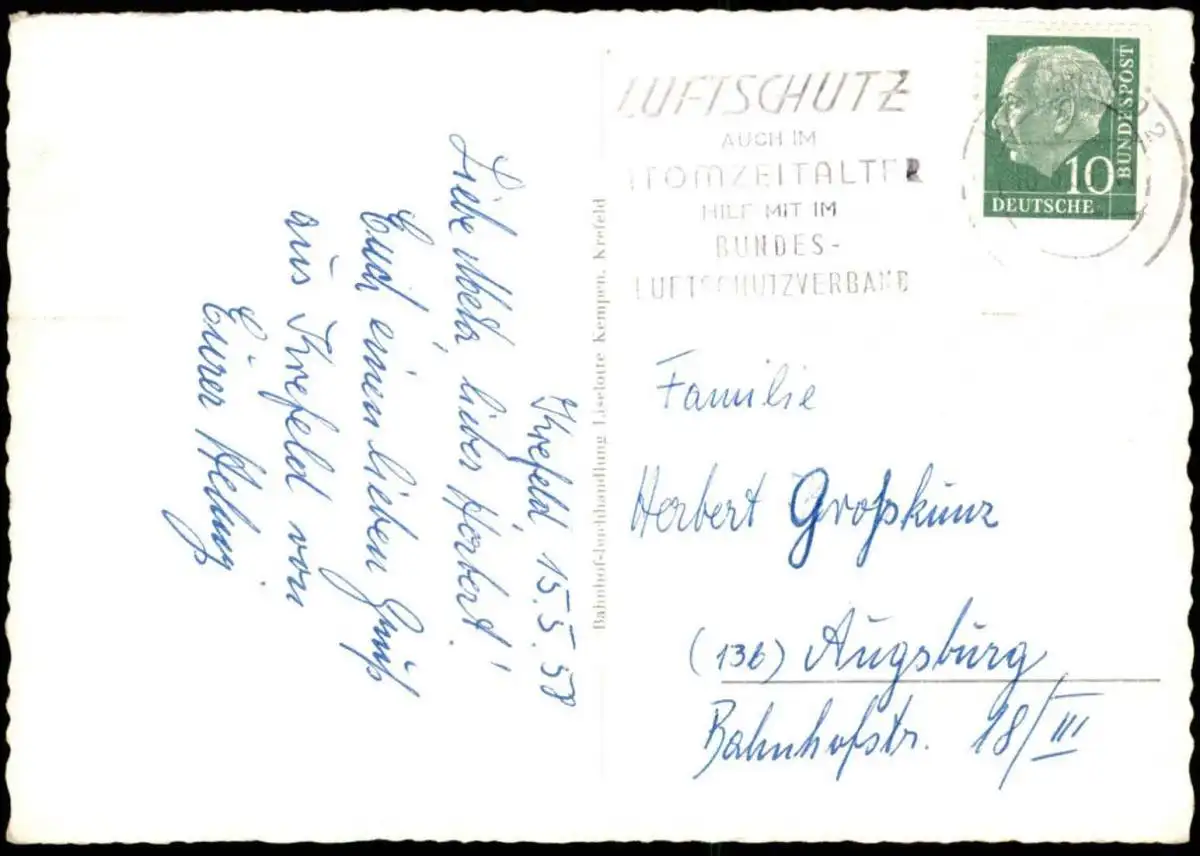 Krefeld 15.5.58
Liebe Meta, lieber Herbert!
Euch einen lieben Gruß
aus Krefeld von
Eurer
Bahnhof-Buchhandlung Liselotte Kempen, Krefeld
LUFTSCHUTZ
AUCH IM
ATOMZEITALTER
HILF MIT IM
BUNDES-
LUFTSCHUTZVERBAND
10
DEUTSCHE
BUNDESPOST
Familie
Herbert Großkunz
(13b) Augsburg
Bahnhofstr. 18/III